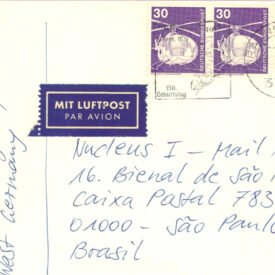 30 30
DEUTSCHE BUNDESPOST
DEUTSCHE BUNDESPOST
150.
Geburtstag
3
MIT LUFTPOST
PAR AVION
Nucleus I - Mail
16. Bienal de São
Caixa Postal 783
01000 - São Paulo
Brasil
West Germany